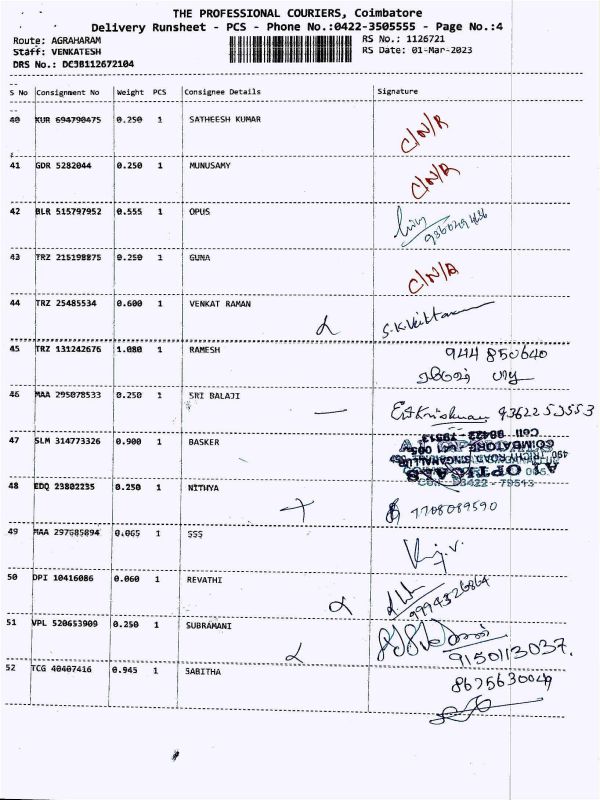 THE PROFESSIONAL COURIERS, Coimbatore
Delivery Runsheet - PCS - Phone No.:0422-3505555 - Page No.:4
Route: AGRAHARAM
RS No.: 1126721
Staff: VENKATESH
RS Date: 01-Mar-2023
DRS No.: DCJB112672104
S No Consignment No Weight PCS Consignee Details Signature
40 KUR 694790475 0.250 1 SATHEESH KUMAR C/N/R
41 GDR 5282044 0.250 1 MUNUSAMY C/N/R
42 BLR 515797952 0.555 1 OPUS
43 TRZ 215198875 0.250 1 GUNA C/N/R
44 TRZ 25485534 0.600 1 VENKAT RAMAN
45 TRZ 131242676 1.080 1 RAMESH 944 850640
46 MAA 295078533 0.250 1 SRI BALAJI
47 SLM 314773326 0.900 1 BASKER
AL OPTICALS
COIMBATORE
Cell 98422 - 79513
48 EDQ 23802235 0.250 1 NITHYA 7708089590
49 MAA 297685894 0.065 1 SSS
50 DPI 10416086 0.060 1 REVATHI 9994326864
51 VPL 520653909 0.250 1 SUBRAMANI 9150113037.
52 TCG 40407416 0.945 1 SABITHA 8675630049